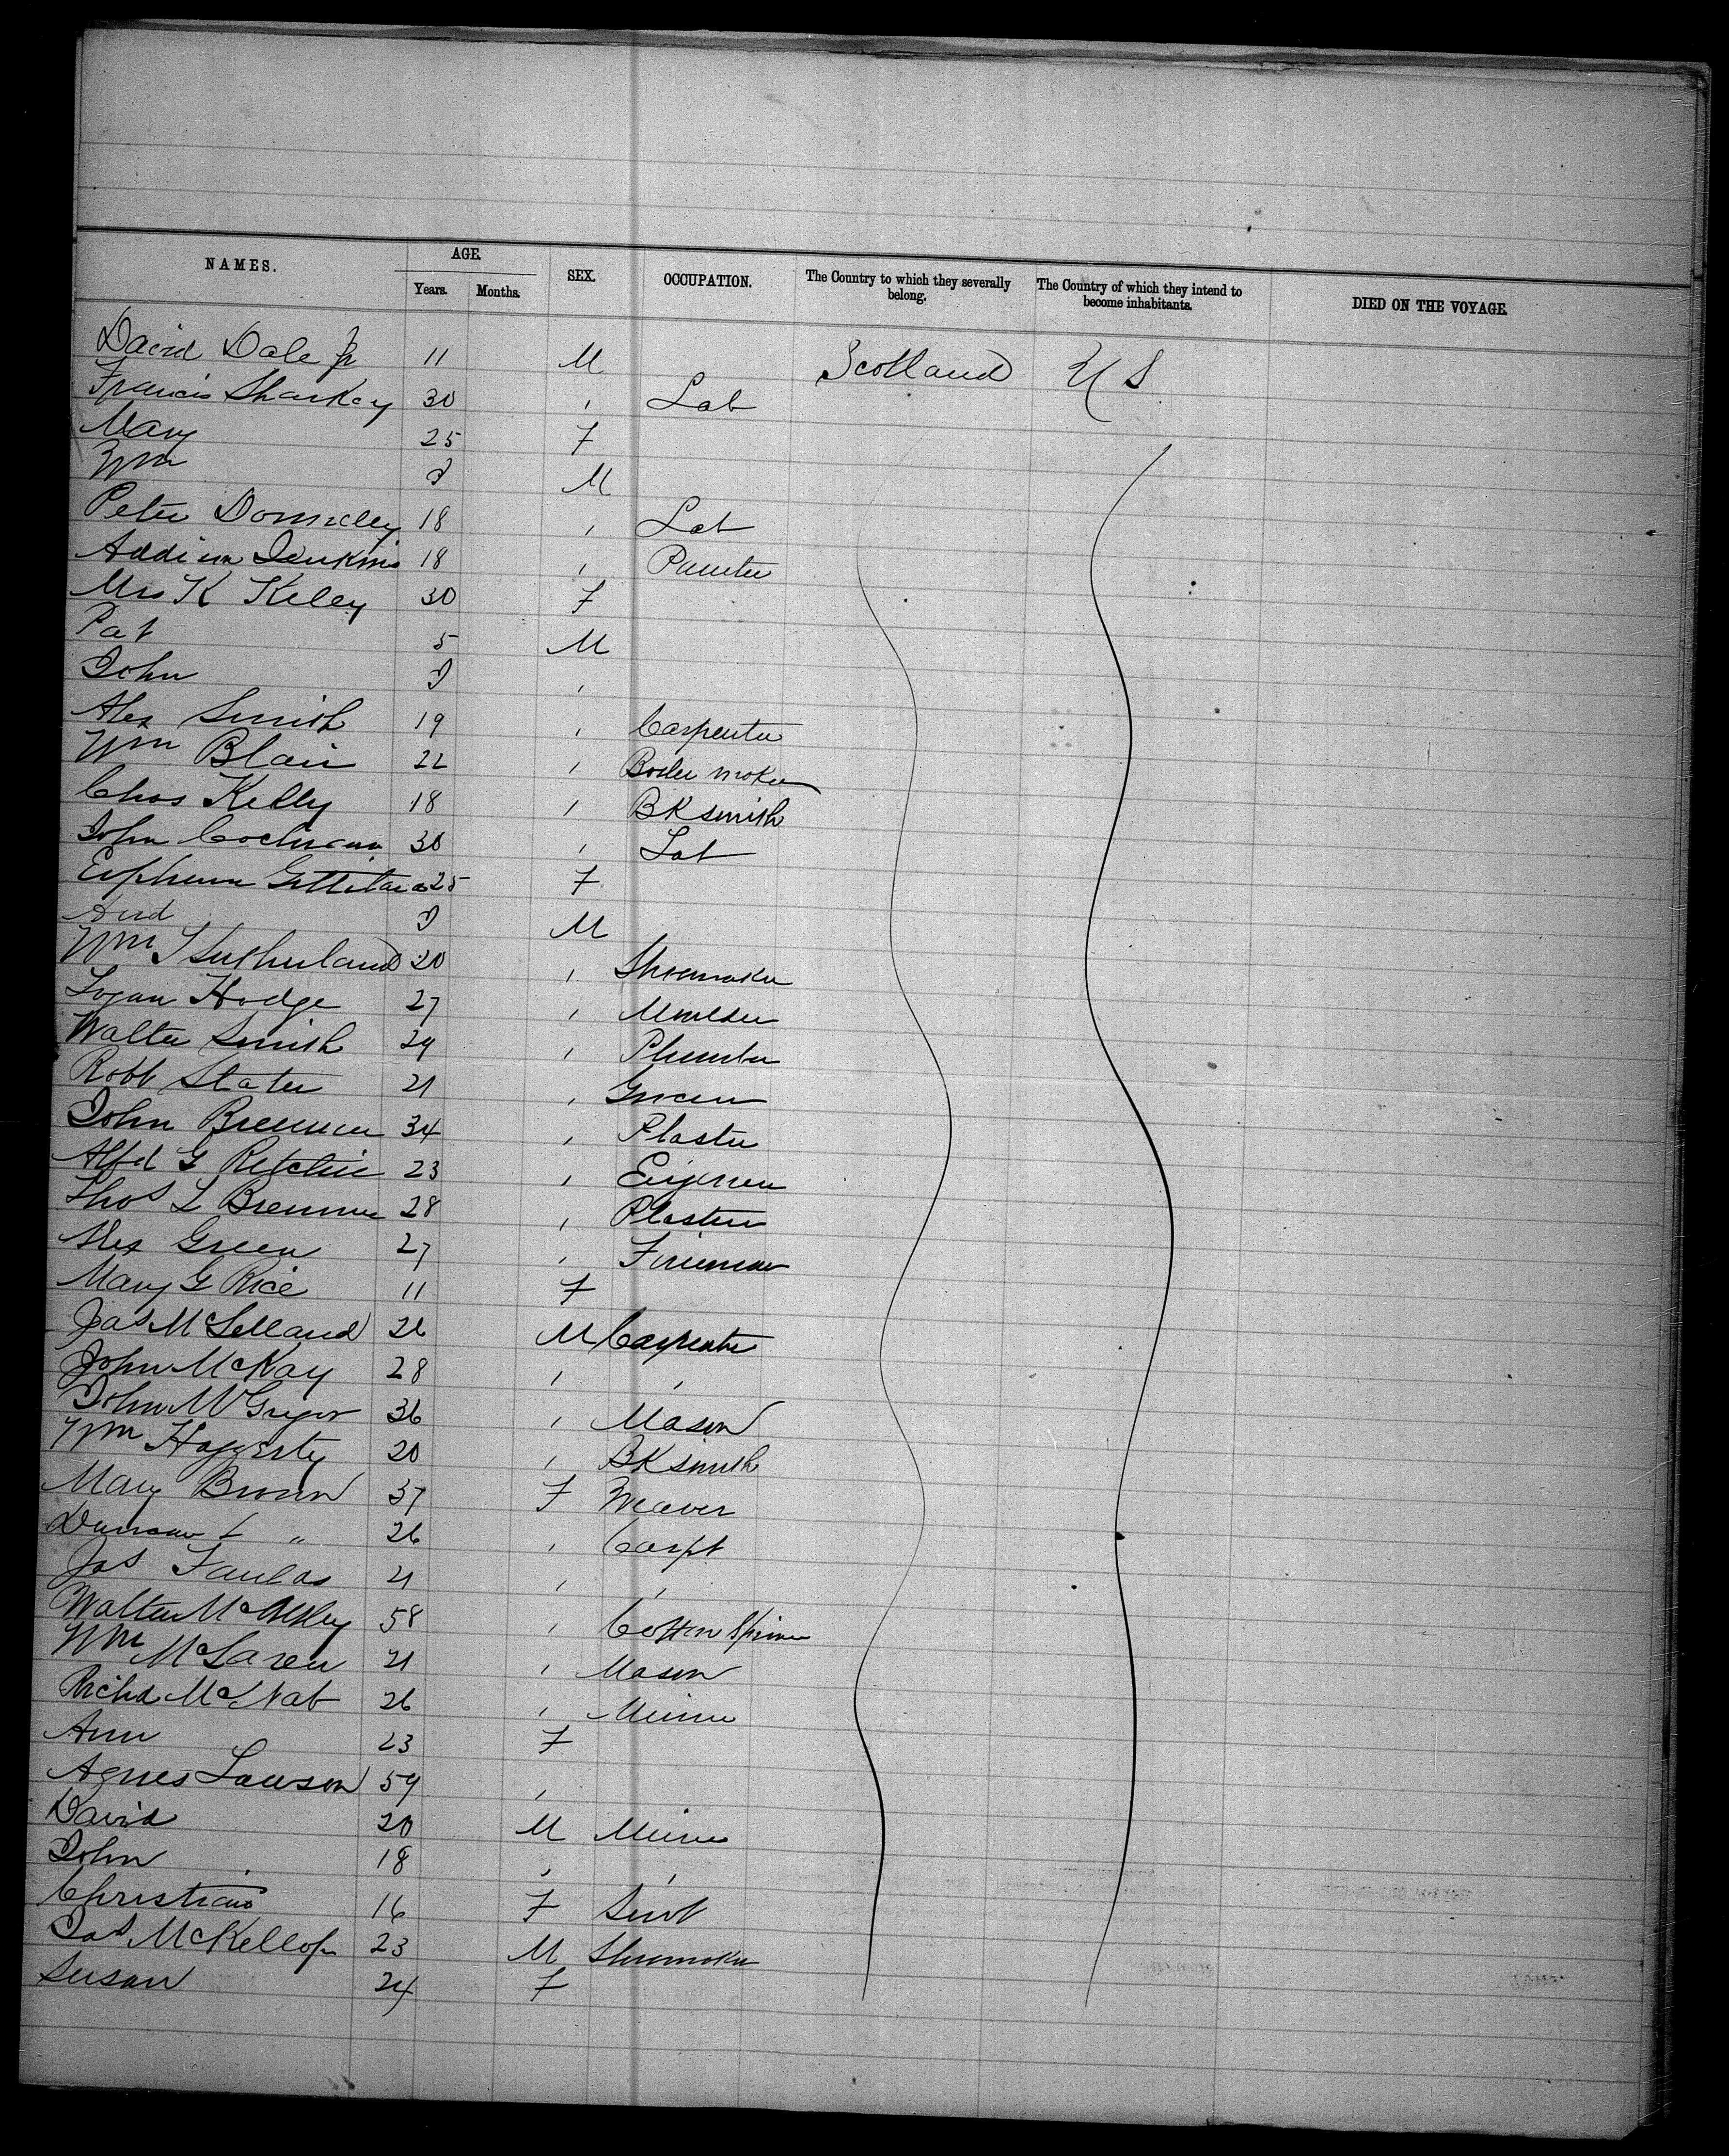 NAMES. AGE. SEX. OCCUPATION. The Country to which they severally belong. The Country of which they intend to become inhabitants. DIED ON THE VOYAGE.
Years. Months.
David Dale Jr 11 M Scotland U S
Francis Sharkey 30 , Lab
Mary 25 F
Wm M
Peter Donnelly 18 , Lab
Jenkins 18 , Painter
Mrs K Kelley 30 F
Pat 5 M
John ,
Alex Smith 19 , Carpenter
Wm Blair 22 , Boiler maker
Chas Kelly 18 , BKsmith
John Cochrann 30 , Lab
25 F
And M
Wm S Sutherland 20 , Shoemaker
Logan Hodge 27 , Moulder
Walter Smith 24 , Plumber
Robt Slater 21 , Grocer
John Bremner 34 , Plaster
Alfd G Ritchie 23 , Engineer
Thos L Bremner 28 , Plaster
Alex Green 27 , Fireman
Mary G Rice 11 F
Jas McLelland 26 M Carpenter
John McKay 28 , ,
John McGregor 36 , Mason
Wm Haggerty 20 , BKsmith
Mary Brown 37 F Weaver
Duncan " 26 , Carpt
Jas Faulds 21 , ,
Walter 58 , Cotton Spinner
Wm McLaren 21 , Mason
Richd McNab 26 , Miner
Ann 23 F
Agnes Lawson 59 ,
David 20 M Miner
John 18 , ,
Christian 16 F Servt
Jas McKellop 23 M Shoemaker
Susan 24 F